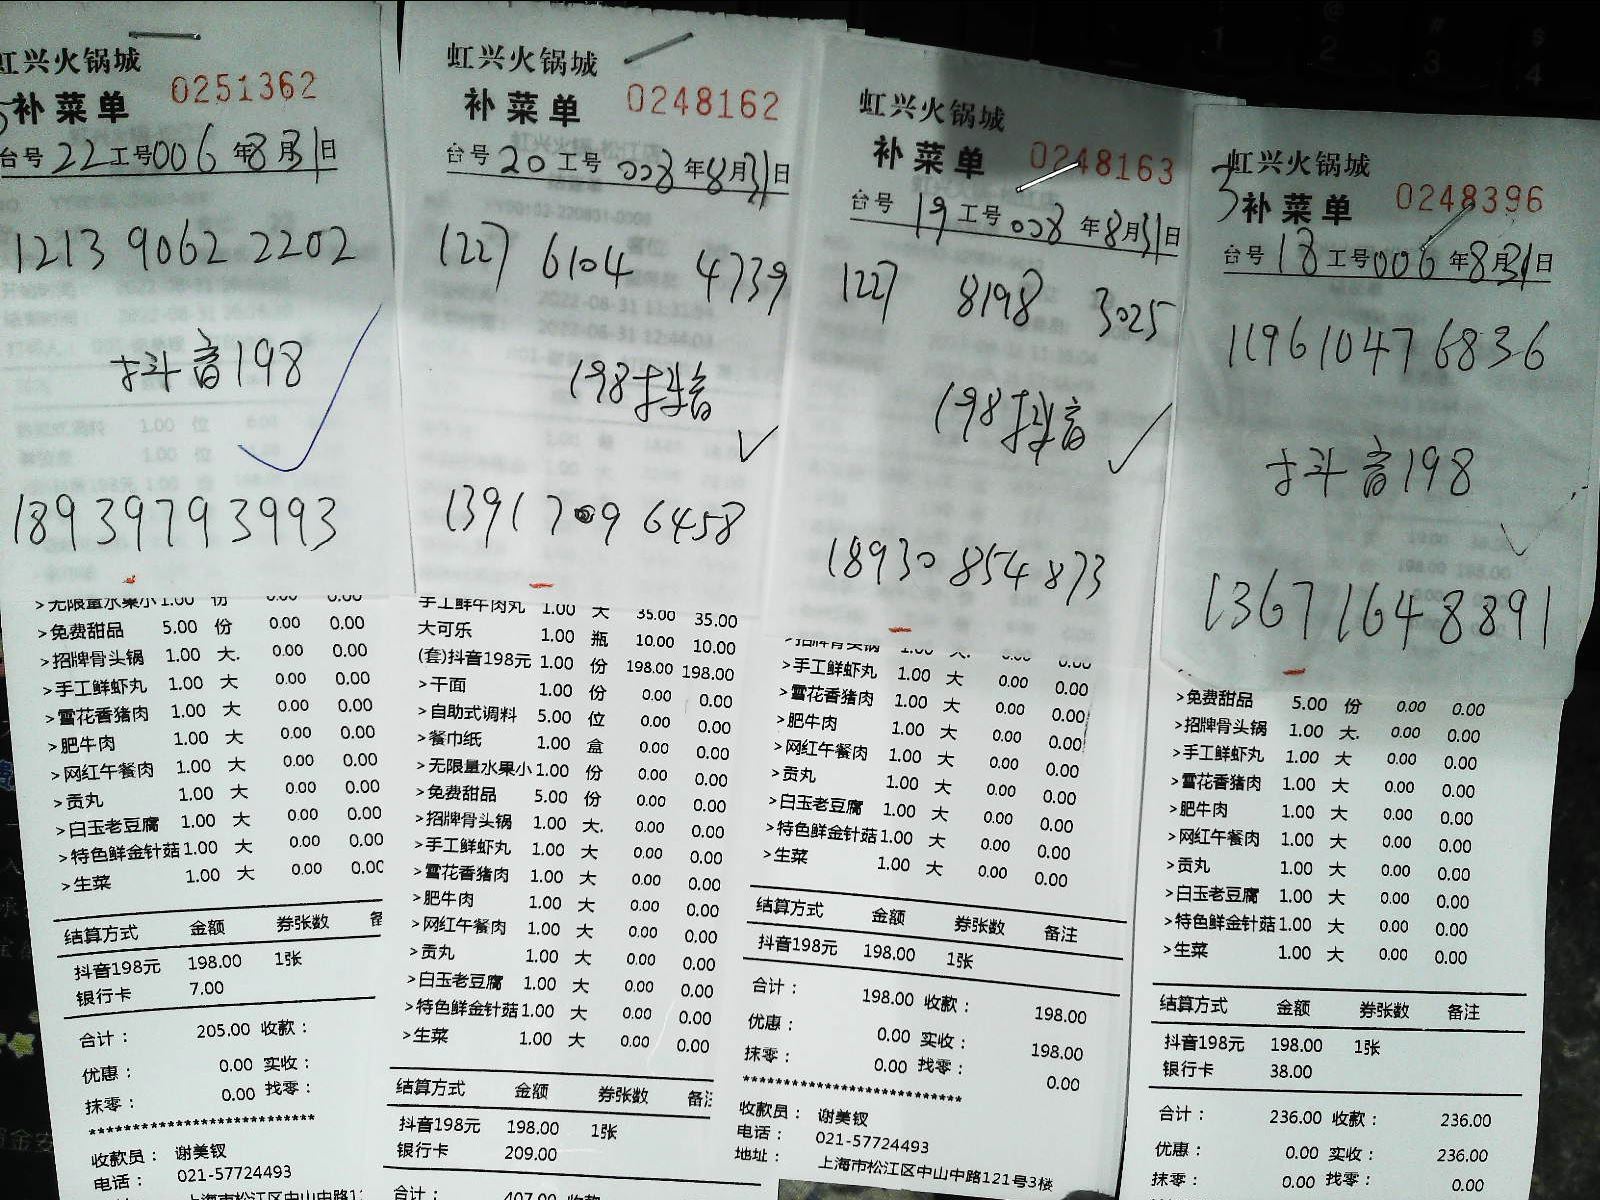 虹兴火锅城
补菜单 0251362
台号 22 工号 006 年 8 月 31 日
1213 9062 2202
抖音198
18939793993
>无限量水果小 1.00 份 0.00 0.00
>免费甜品 5.00 份 0.00 0.00
>招牌骨头锅 1.00 大. 0.00 0.00
>手工鲜虾丸 1.00 大 0.00 0.00
>雪花香猪肉 1.00 大 0.00 0.00
>肥牛肉 1.00 大 0.00 0.00
>网红午餐肉 1.00 大 0.00 0.00
>贡丸 1.00 大 0.00 0.00
>白玉老豆腐 1.00 大 0.00 0.00
>特色鲜金针菇 1.00 大 0.00 0.00
>生菜 1.00 大 0.00 0.00
结算方式 金额 券张数
抖音198元 198.00 1张
银行卡 7.00
合计： 205.00 收款：
优惠： 0.00 实收：
抹零： 0.00 找零：
**************************
收款员： 谢美钗
电话： 021-57724493
上海市松江区中山中路1
虹兴火锅城
补菜单 0248162
台号 20 工号 008 年 8 月 31 日
1227 6104 4739
198抖音
1391709 6458
手工鲜牛肉丸 1.00 大 35.00 35.00
大可乐 1.00 瓶 10.00 10.00
(套)抖音198元 1.00 份 198.00 198.00
>干面 1.00 份 0.00 0.00
>自助式调料 5.00 位 0.00 0.00
>餐巾纸 1.00 盒 0.00 0.00
>无限量水果小 1.00 份 0.00 0.00
>免费甜品 5.00 份 0.00 0.00
>招牌骨头锅 1.00 大. 0.00 0.00
>手工鲜虾丸 1.00 大 0.00 0.00
>雪花香猪肉 1.00 大 0.00 0.00
>肥牛肉 1.00 大 0.00 0.00
>网红午餐肉 1.00 大 0.00 0.00
>贡丸 1.00 大 0.00 0.00
>白玉老豆腐 1.00 大 0.00 0.00
>特色鲜金针菇 1.00 大 0.00 0.00
>生菜 1.00 大 0.00 0.00
结算方式 金额 券张数 备注
抖音198元 198.00 1张
银行卡 209.00
合计： 407.00 收款
虹兴火锅城
补菜单 0248163
台号 19 工号 008 年 8 月 31 日
1227 8198 3025
198抖音
18930 854 873
>招牌骨头锅 1.00 大. 0.00 0.00
>手工鲜虾丸 1.00 大 0.00 0.00
>雪花香猪肉 1.00 大 0.00 0.00
>肥牛肉 1.00 大 0.00 0.00
>网红午餐肉 1.00 大 0.00 0.00
>贡丸 1.00 大 0.00 0.00
>白玉老豆腐 1.00 大 0.00 0.00
>特色鲜金针菇 1.00 大 0.00 0.00
>生菜 1.00 大 0.00 0.00
结算方式 金额 券张数 备注
抖音198元 198.00 1张
合计： 198.00 收款： 198.00
优惠： 0.00 实收： 198.00
抹零： 0.00 找零： 0.00
**************************
收款员： 谢美钗
电话： 021-57724493
地址： 上海市松江区中山中路121号3楼
虹兴火锅城
补菜单 0248396
台号 18 工号 006 年 8 月 31 日
1196 1047 6836
抖音198
13671648891
>免费甜品 5.00 份 0.00 0.00
>招牌骨头锅 1.00 大. 0.00 0.00
>手工鲜虾丸 1.00 大 0.00 0.00
>雪花香猪肉 1.00 大 0.00 0.00
>肥牛肉 1.00 大 0.00 0.00
>网红午餐肉 1.00 大 0.00 0.00
>贡丸 1.00 大 0.00 0.00
>白玉老豆腐 1.00 大 0.00 0.00
>特色鲜金针菇 1.00 大 0.00 0.00
>生菜 1.00 大 0.00 0.00
结算方式 金额 券张数 备注
抖音198元 198.00 1张
银行卡 38.00
合计： 236.00 收款： 236.00
优惠： 0.00 实收： 236.00
抹零： 0.00 找零： 0.00